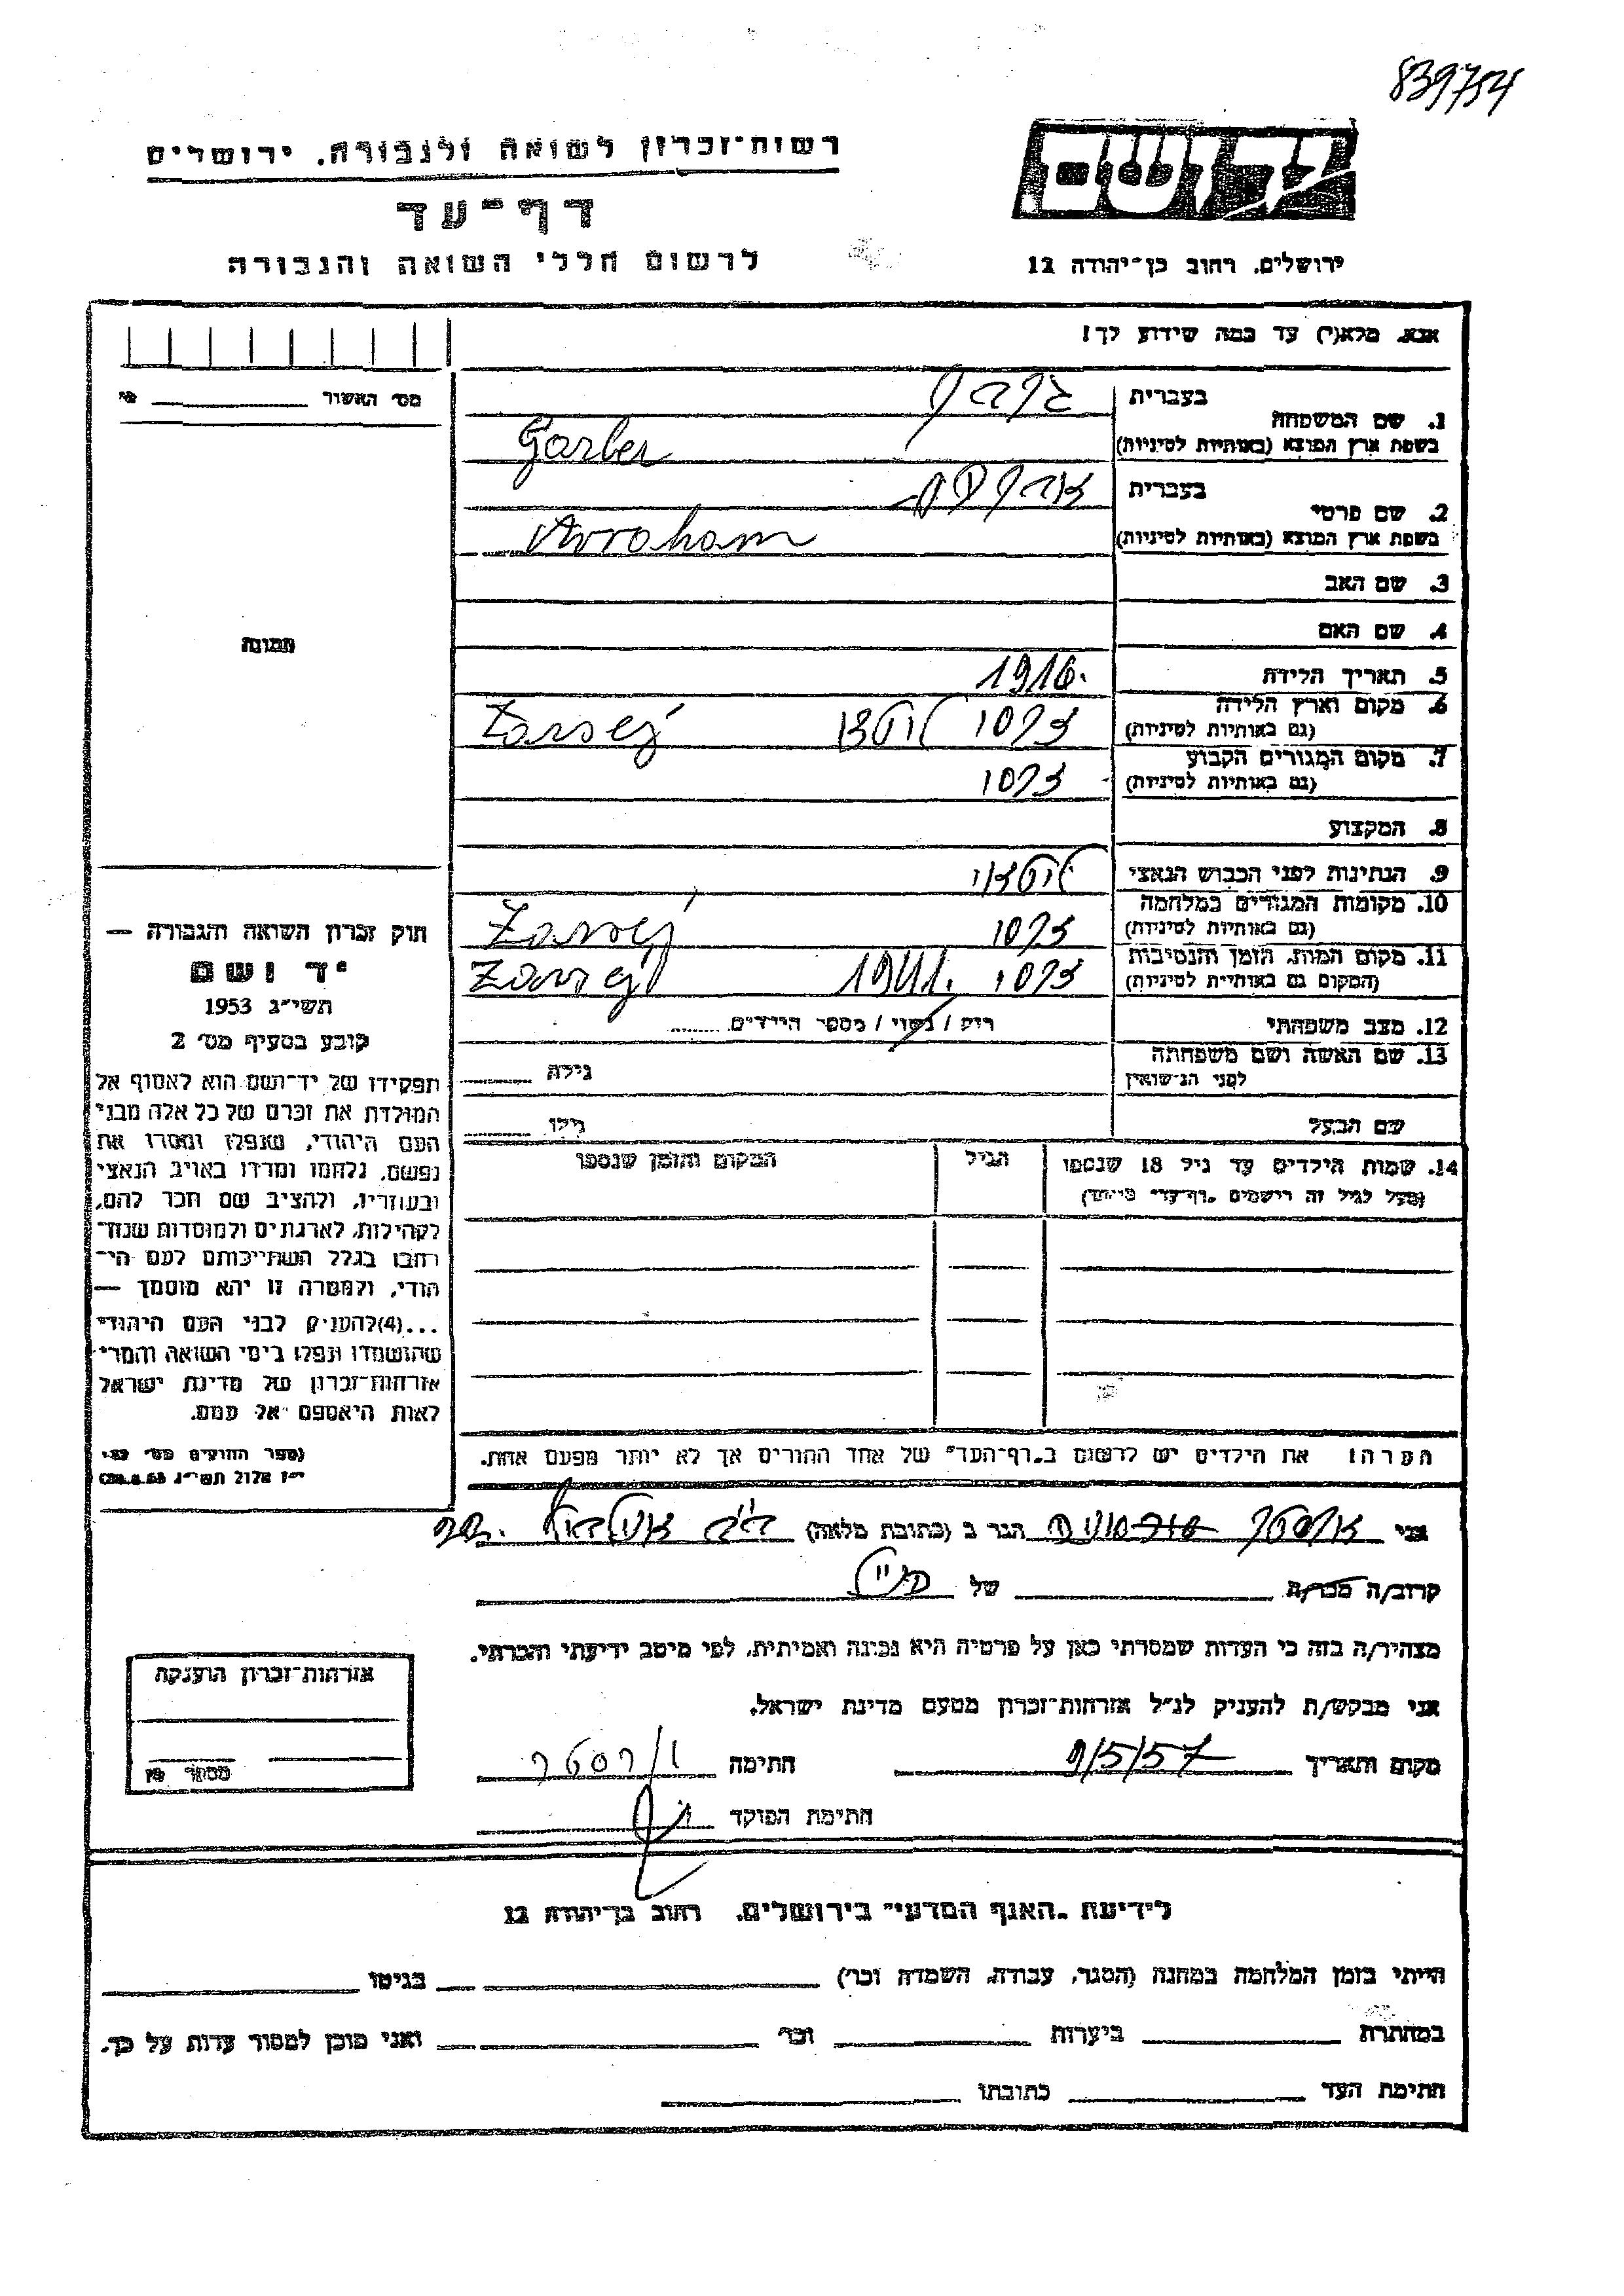 839754
רשות־זכרון לשואה ולגבורה. ירושלים
דף־עד
לרשום חללי השואה והגבורה
יד ושם
ירושלים, רחוב בן־יהודה 12
אנא, מלא(י) עד כמה שידוע לך!
מס׳ האשור
1. שם המשפחה
בעברית גרבר
בשפת ארץ המוצא (באותיות לטיניות) Garber
2. שם פרטי
בעברית אברהם
בשפת ארץ המוצא (באותיות לטיניות) Avraham
3. שם האב
4. שם האם
תמונה
5. תאריך הלידה 1916.
6. מקום וארץ הלידה
(גם באותיות לטיניות)
7. מקום המגורים הקבוע
(גם באותיות לטיניות)
8. המקצוע
9. הנתינות לפני הכבוש הנאצי
10. מקומות המגורים במלחמה
(גם באותיות לטיניות)
11. מקום המות, הזמן והנסיבות 1941.
(המקום גם באותיות לטיניות)
12. מצב משפחתי רוק / נשוי / מספר הילדים
13. שם האשה ושם משפחתה
לפני הנישואין גילה
שם הבעל גילו
14. שמות הילדים עד גיל 18 שנספו הגיל המקום והזמן שנספו
(מעל לגיל זה רישמים „דף־עד״ מיוחד)
הערה! את הילדים יש לרשום ב„דף־העד״ של אחד ההורים אך לא יותר מפעם אחת.
חוק זכרון השואה והגבורה —
יד ושם
תשי״ג 1953
קובע בסעיף מס׳ 2
תפקידו של יד־ושם הוא לאסוף אל
המולדת את זכרם של כל אלה מבני
העם היהודי, שנפלו ומסרו את
נפשם, נלחמו ומרדו באויב הנאצי
ובעוזריו, ולהציב שם וזכר להם,
לקהילות, לארגונים ולמוסדות שנח־
רבו בגלל השתייכותם לעם הי־
הודי, ולמטרה זו יהא מוסמך —
...(4)להעניק לבני העם היהודי
שהושמדו ונפלו בימי השואה והמרי
אזרחות־זכרון של מדינת ישראל
לאות היאספם אל עמם.
(ספר החוקים מס׳ 132.
י״ז אלול תשי״ג 28.8.53)
אני הגר ב (כתובת מלאה)
קרוב/ה מכר/ה של
מצהיר/ה בזה כי העדות שמסרתי כאן על פרטיה היא נכונה ואמיתית, לפי מיטב ידיעתי והכרתי.
אני מבקש/ת להעניק לנ״ל אזרחות־זכרון מטעם מדינת ישראל.
מקום ותאריך 9/5/57 חתימה
חתימת הפוקד
אזרחות־זכרון הוענקה
מספר
לידיעת „האגף המדעי״ בירושלים. רחוב בן־יהודה 12
הייתי בזמן המלחמה במחנה (הסגר, עבודה, השמדה וכו׳) בגיטו
במחתרת ביערות וכו׳ ואני מוכן למסור עדות על כך.
חתימת העד כתובתו